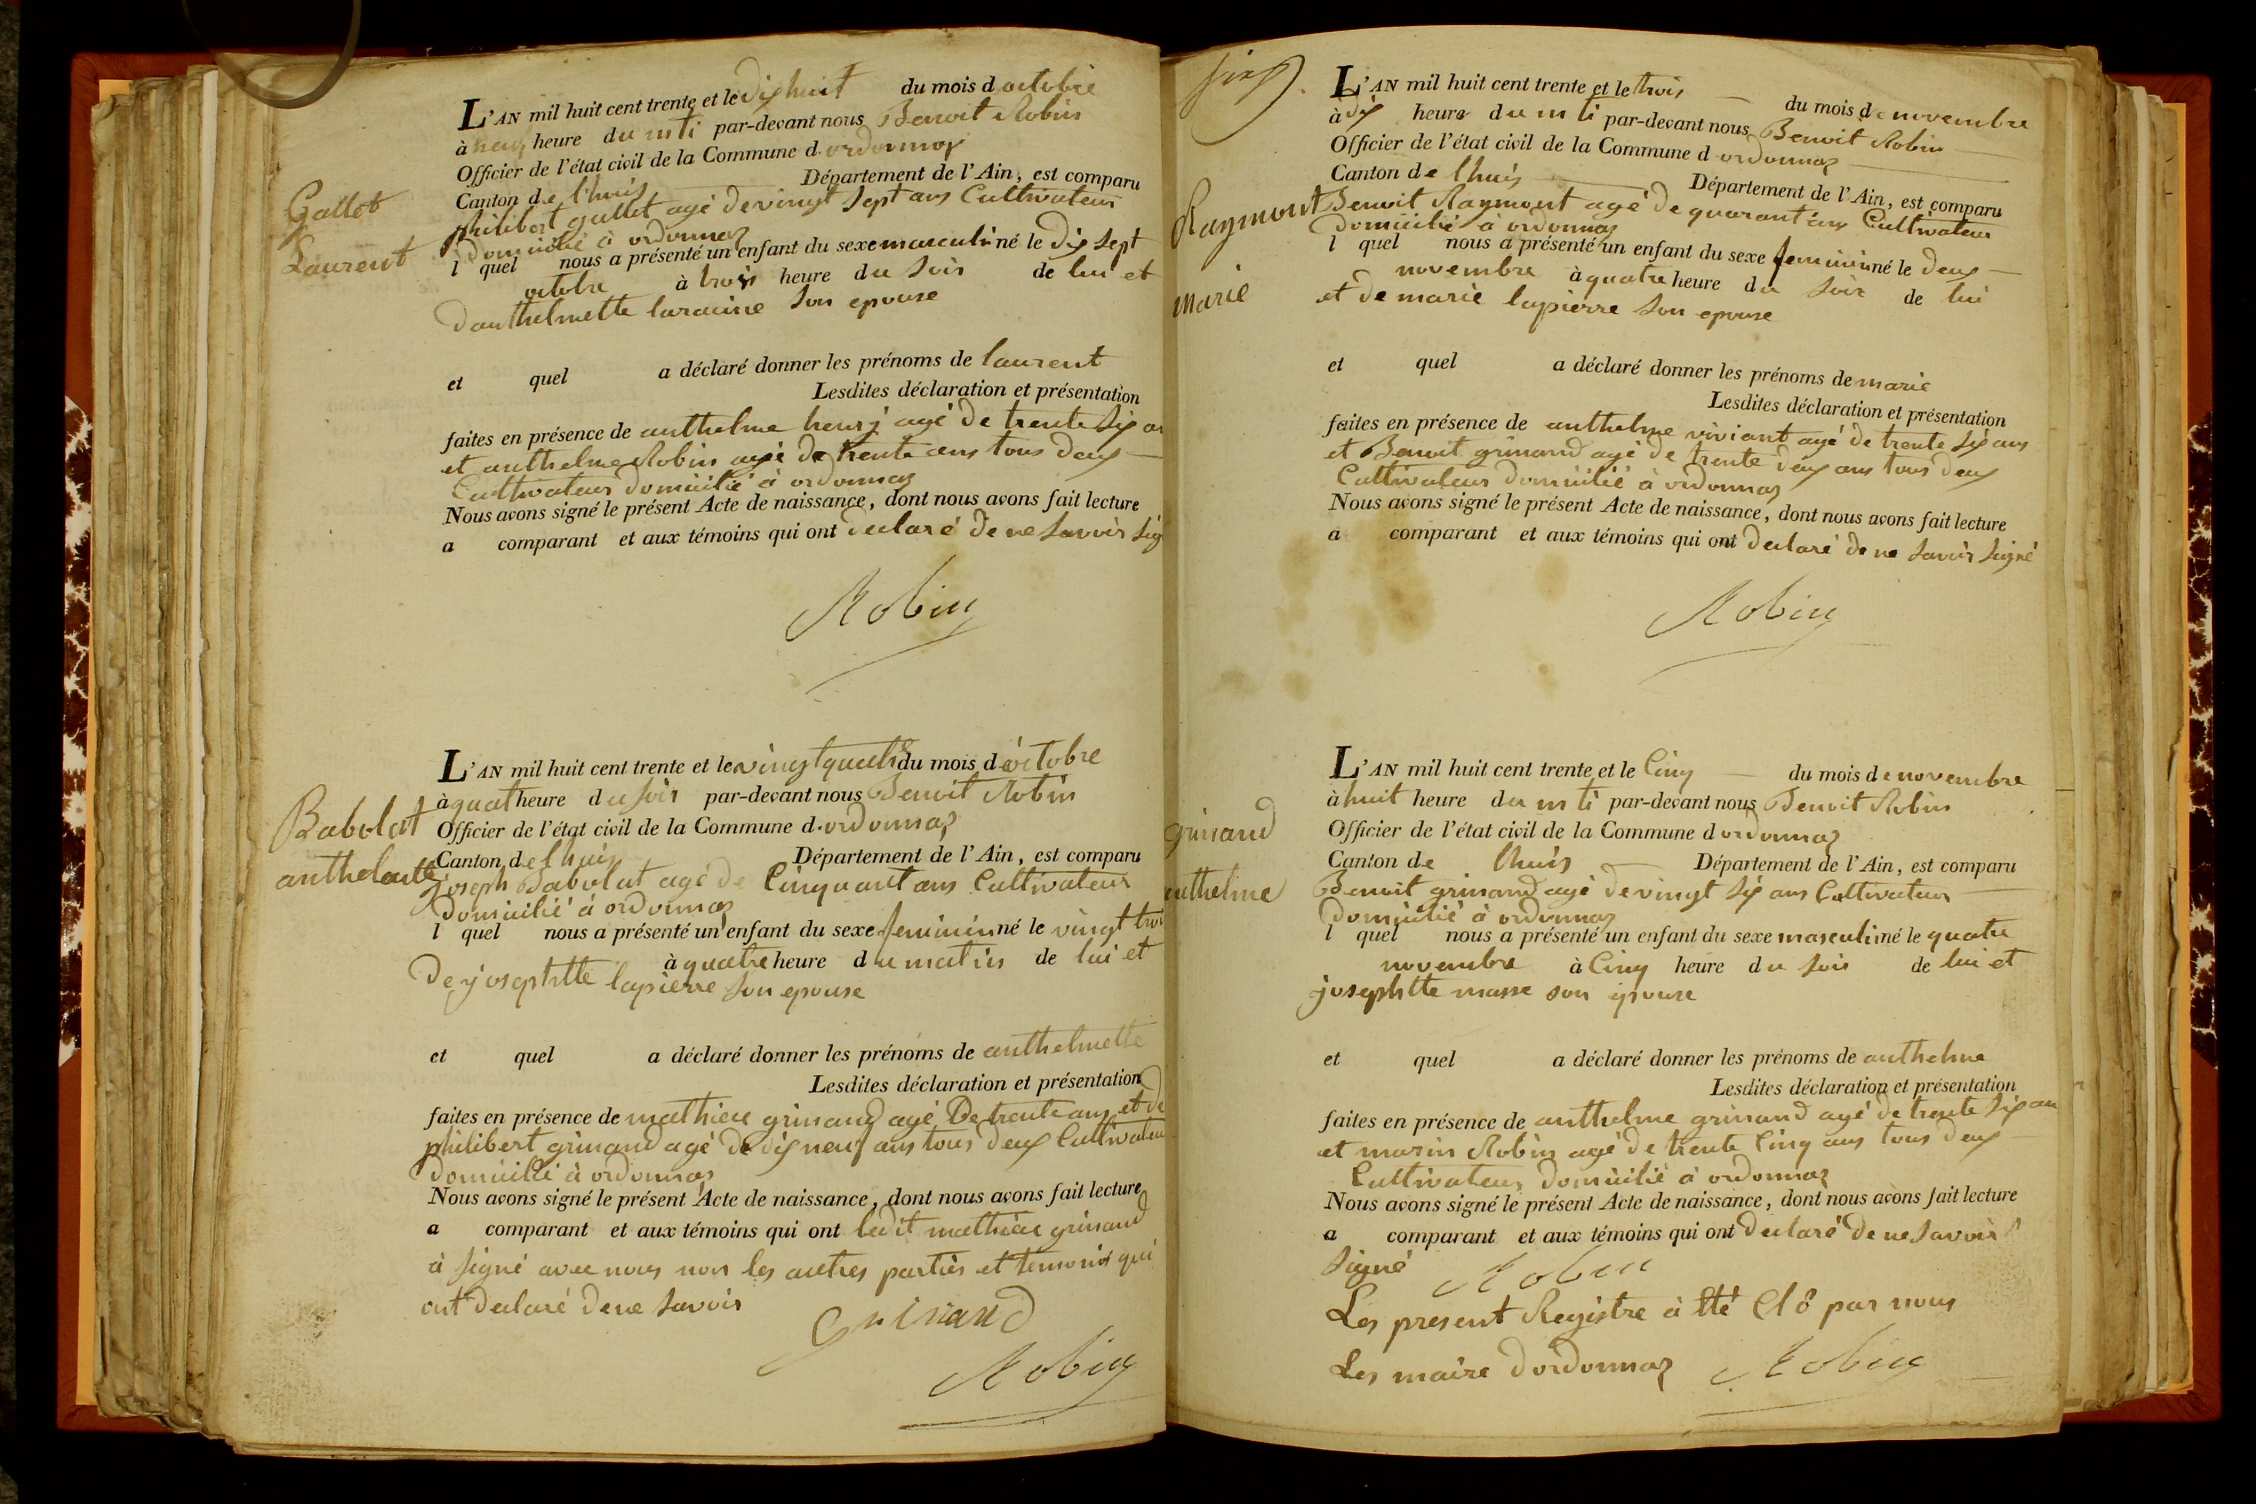 L'AN mil huit cent trente et le dix huit du mois d octobre
à neuf heure du mti par-devant nous Benoit Robin
Officier de l'état civil de la Commune d. ordonnaz
Canton de lhuis Département de l'Ain, est comparu
Gallet
philibert gallet agé de vingt sept ans Cultivateur
domicilié à ordonnaz
Laurent
l quel nous a présenté un enfant du sexe masculin né le dix sept
octobre à trois heure du soir de lui et
danthelmette laracine son epouse
et quel a déclaré donner les prénoms de laurent
Lesdites déclaration et présentation
faites en présence de anthelme henrj agé de trente six an
et anthelme Robin agé de trente ans tous deux
Cultivateur domicilié à ordonnaz
Nous avons signé le présent Acte de naissance, dont nous avons fait lecture
a comparant et aux témoins qui ont declaré de ne savoir sig
Robin
L'AN mil huit cent trente et le vingt quatr du mois d octobre
à quat heure du soir par-devant nous Benoit Robin
Babolat
Officier de l'état civil de la Commune d. ordonnaz
Canton de lhuis Département de l'Ain, est comparu
joseph Babolat agé de Cinquant ans Cultivateur
domicilié à ordonnaz
l quel nous a présenté un enfant du sexe feminin né le vingt troi
à quatre heure du matin de lui et
de josephtte lapierre son epouse
et quel a déclaré donner les prénoms de anthelmette
Lesdites déclaration et présentation
faites en présence de mathieu grinand agé De trente ans et de
philibert grinand agé de dix neuf ans tous deux Cultivateur
domicilié à ordonnaz
Nous avons signé le présent Acte de naissance, dont nous avons fait lecture
a comparant et aux témoins qui ont ledit mathieu grinand
à signé avec nous non les autres parties et temoins qui
ont declaré de ne savoir
Grinand
Robin
L'AN mil huit cent trente et le trois du mois de novembre
à dix heure du mti par-devant nous Benoit Robin
Officier de l'état civil de la Commune d ordonnaz
Canton de lhuis Département de l'Ain, est comparu
Raymont
Benoit Raymont agé de quarant ans Cultivateur
domicilié à ordonnaz
l quel nous a présenté un enfant du sexe feminin né le deux
marie
novembre à quatre heure du soir de lui
et de marie lapierre son epouse
et quel a déclaré donner les prénoms de marie
Lesdites déclaration et présentation
faites en présence de anthelme viviant agé de trente six ans
et Benoit grinand agé de trente deux ans tous deux
Cultivateur domicilié à ordonnaz
Nous avons signé le présent Acte de naissance, dont nous avons fait lecture
a comparant et aux témoins qui ont declaré de ne savoir signé
Robin
L'AN mil huit cent trente et le Cinq du mois de novembre
à huit heure du mti par-devant nous Benoit Robin
grinand
Officier de l'état civil de la Commune d ordonnaz
Canton de lhuis Département de l'Ain, est comparu
anthelme
Benoit grinand agé de vingt six ans Cultivateur
domicilié à ordonnaz
l quel nous a présenté un enfant du sexe masculin né le quatre
novembre à Cinq heure du soir de lui et
josephtte masse son epouse
et quel a déclaré donner les prénoms de anthelme
Lesdites déclaration et présentation
faites en présence de anthelme grinand agé de trente six an
et marin Robin agé de trente Cinq ans tous deux
Cultivateur domicilié à ordonnaz
Nous avons signé le présent Acte de naissance, dont nous avons fait lecture
a comparant et aux témoins qui ont declaré de ne savoir
signé
Robin
Les present Registre à tté Clô par nous
Les maire dordonnaz
Robin